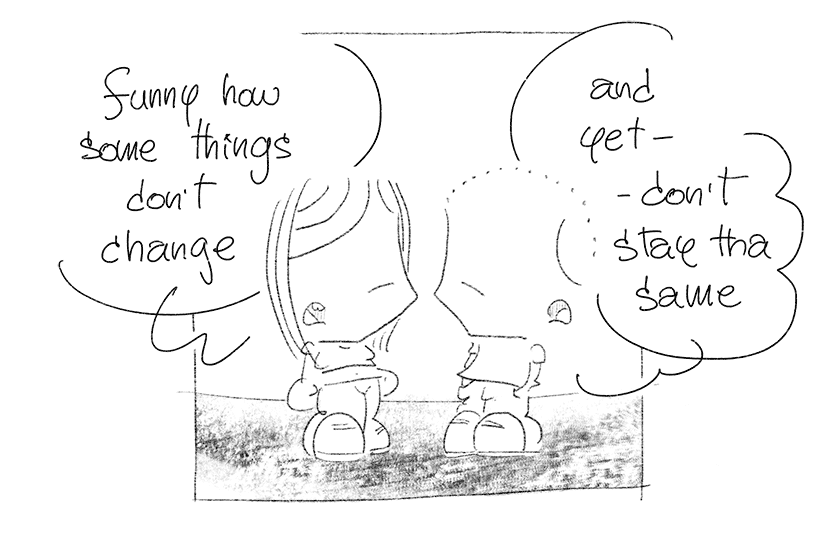 funny how
some things
don't
change
and
yet-
-don't
stay tha
same